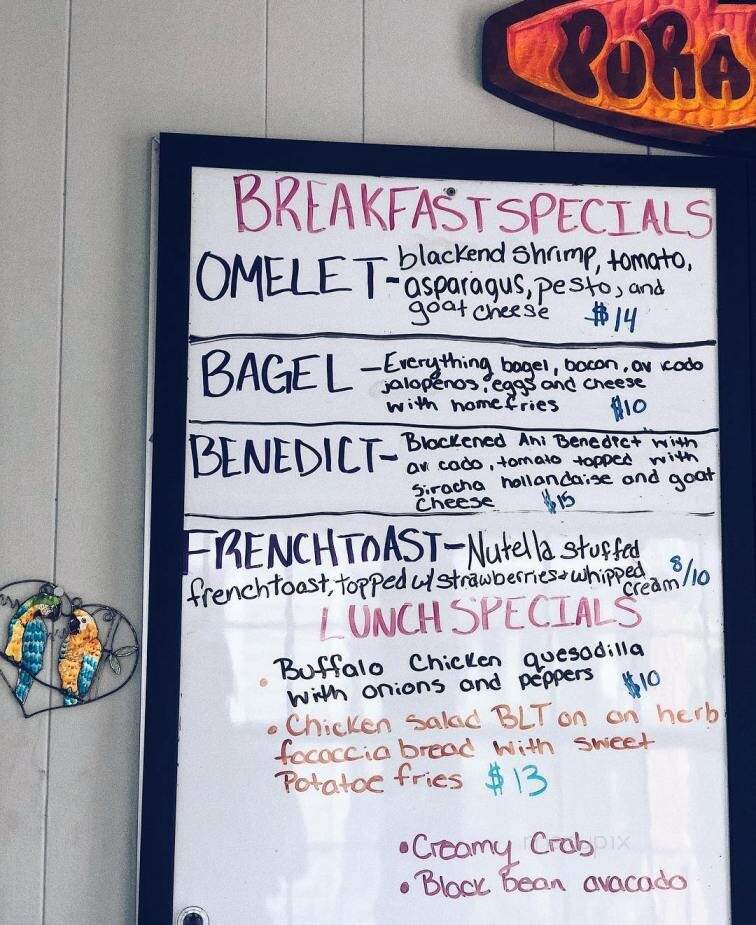 PURA
BREAKFAST SPECIALS
OMELET - blackend shrimp, tomato,
asparagus, pesto, and
goat cheese $14
BAGEL - Everything bagel, bacon, av cado
jalapenos, eggs and cheese
with homefries $10
BENEDICT - Blackened Ahi Benedict with
av cado, tomato topped with
siracha hollandaise and goat
cheese $15
FRENCH TOAST - Nutella stuffed
frenchtoast, topped w/ strawberries + whipped
cream 8/10
LUNCH SPECIALS
• Buffalo Chicken quesadilla
with onions and peppers $10
• Chicken Salad BLT on an herb
fococcia bread with sweet
Potatoe fries $13
• Creamy Crab
• Black bean avacado